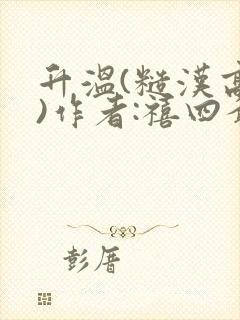 升温(糙汉高
)作者:禧四
彭厝